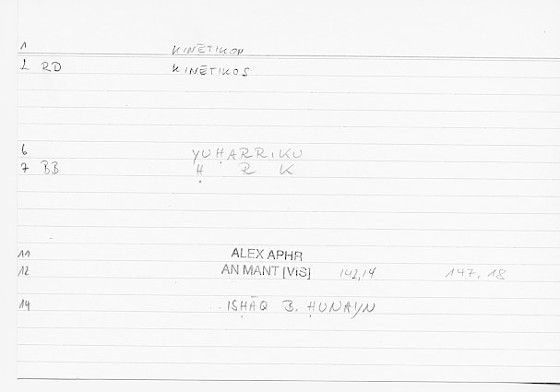 1 KINĒTIKON
2 RD KINĒTIKOS
6 YUḤARRIKU
7 BB Ḥ R K
11 ALEX APHR
12 AN MANT [VIS] 142,14 147,18
14 ISḤĀQ B. ḤUNAYN